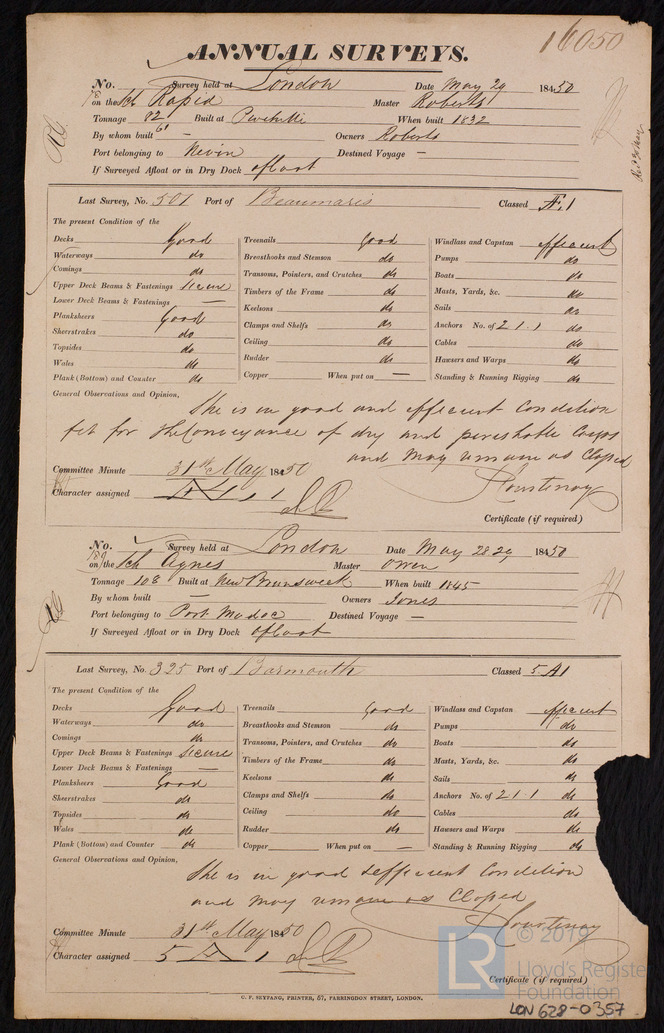 16050
ANNUAL SURVEYS.
No. Survey held at London Date May 29 1850
on the Sch Rapid Master Roberts
Tonnage 82 Built at Pwllheli When built 1832
61
By whom built — Owners Roberts
Port belonging to Nevin Destined Voyage —
If Surveyed Afloat or in Dry Dock afloat
Last Survey, No. 501 Port of Beaumaris Classed Æ 1
The present Condition of the
Decks Good Treenails Good Windlass and Capstan efficient
Waterways do Breasthooks and Stemson do Pumps do
Comings do Transoms, Pointers, and Crutches do Boats do
Upper Deck Beams & Fastenings secure Timbers of the Frame do Masts, Yards, &c. do
Lower Deck Beams & Fastenings — Keelsons do Sails do
Planksheers Good Clamps and Shelfs do Anchors No. of 2 1 . 1 do
Sheerstrakes do Ceiling do Cables do
Topsides do Rudder do Hawsers and Warps do
Wales do Copper When put on — Standing & Running Rigging do
Plank (Bottom) and Counter do
General Observations and Opinion,
She is in good and efficient Condition
fit for the Conveyance of dry and perishable Cargo
and may remain as Classed
Courtenay
Committee Minute 31st May 1850
Character assigned Æ 1
Certificate (if required)
No. Survey held at London Date May 28 29 1850
on the Sch Agnes Master Owen
Tonnage 108 Built at New Brunswick When built 1845
By whom built — Owners Jones
Port belonging to Port Madoc Destined Voyage —
If Surveyed Afloat or in Dry Dock afloat
Last Survey, No. 325 Port of Yarmouth Classed 5 A1
The present Condition of the
Decks Good Treenails Good Windlass and Capstan efficient
Waterways do Breasthooks and Stemson do Pumps do
Comings do Transoms, Pointers, and Crutches do Boats do
Upper Deck Beams & Fastenings secure Timbers of the Frame do Masts, Yards, &c. do
Lower Deck Beams & Fastenings — Keelsons do Sails do
Planksheers Good Clamps and Shelfs do Anchors No. of 2 1 1 do
Sheerstrakes do Ceiling do Cables do
Topsides do Rudder do Hawsers and Warps do
Wales do Copper When put on — Standing & Running Rigging do
Plank (Bottom) and Counter do
General Observations and Opinion,
She is in good & efficient Condition
and may remain as Classed
Courtenay
Committee Minute 31st May 1850
Character assigned 5 A 1
Certificate (if required)
C. F. SEYFANG, PRINTER, 57, FARRINGDON STREET, LONDON.
LR © 2019
Lloyd's Register
Foundation
LON 628-0357